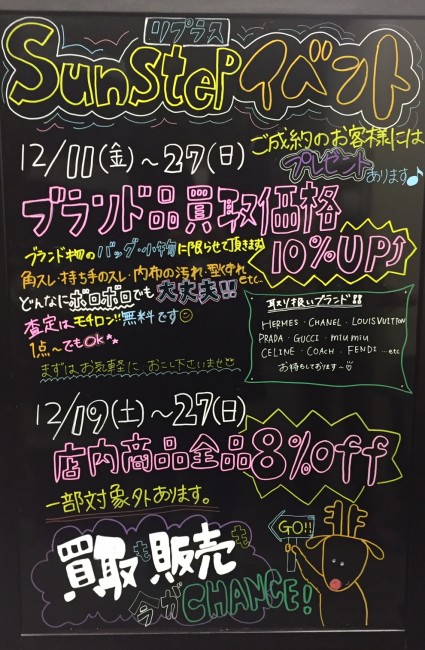 リプラス
SunStep イベント
12/11(金)～27(日)
ご成約のお客様には
プレゼント
あります♪
ブランド品買取価格
10%UP↑
ブランド物のバッグ・小物に限らせて頂きます
角スレ・持ち手のスレ・内布の汚れ・型くずれetc..
どんなにボロボロでも大丈夫!!
査定はモチロン!!無料です☺
1点～でもOK**
まずはお気軽にお こし下さいませ
取り扱いブランド
HERMES・CHANEL・LOUIS VUITTON
PRADA・GUCCI・miu miu
CELINE・COACH・FENDI...etc
お待ちしております～♡
12/19(土)～27(日)
店内商品全品8%off
一部対象外あります。
GO!!
買取も販売も
今がCHANCE!